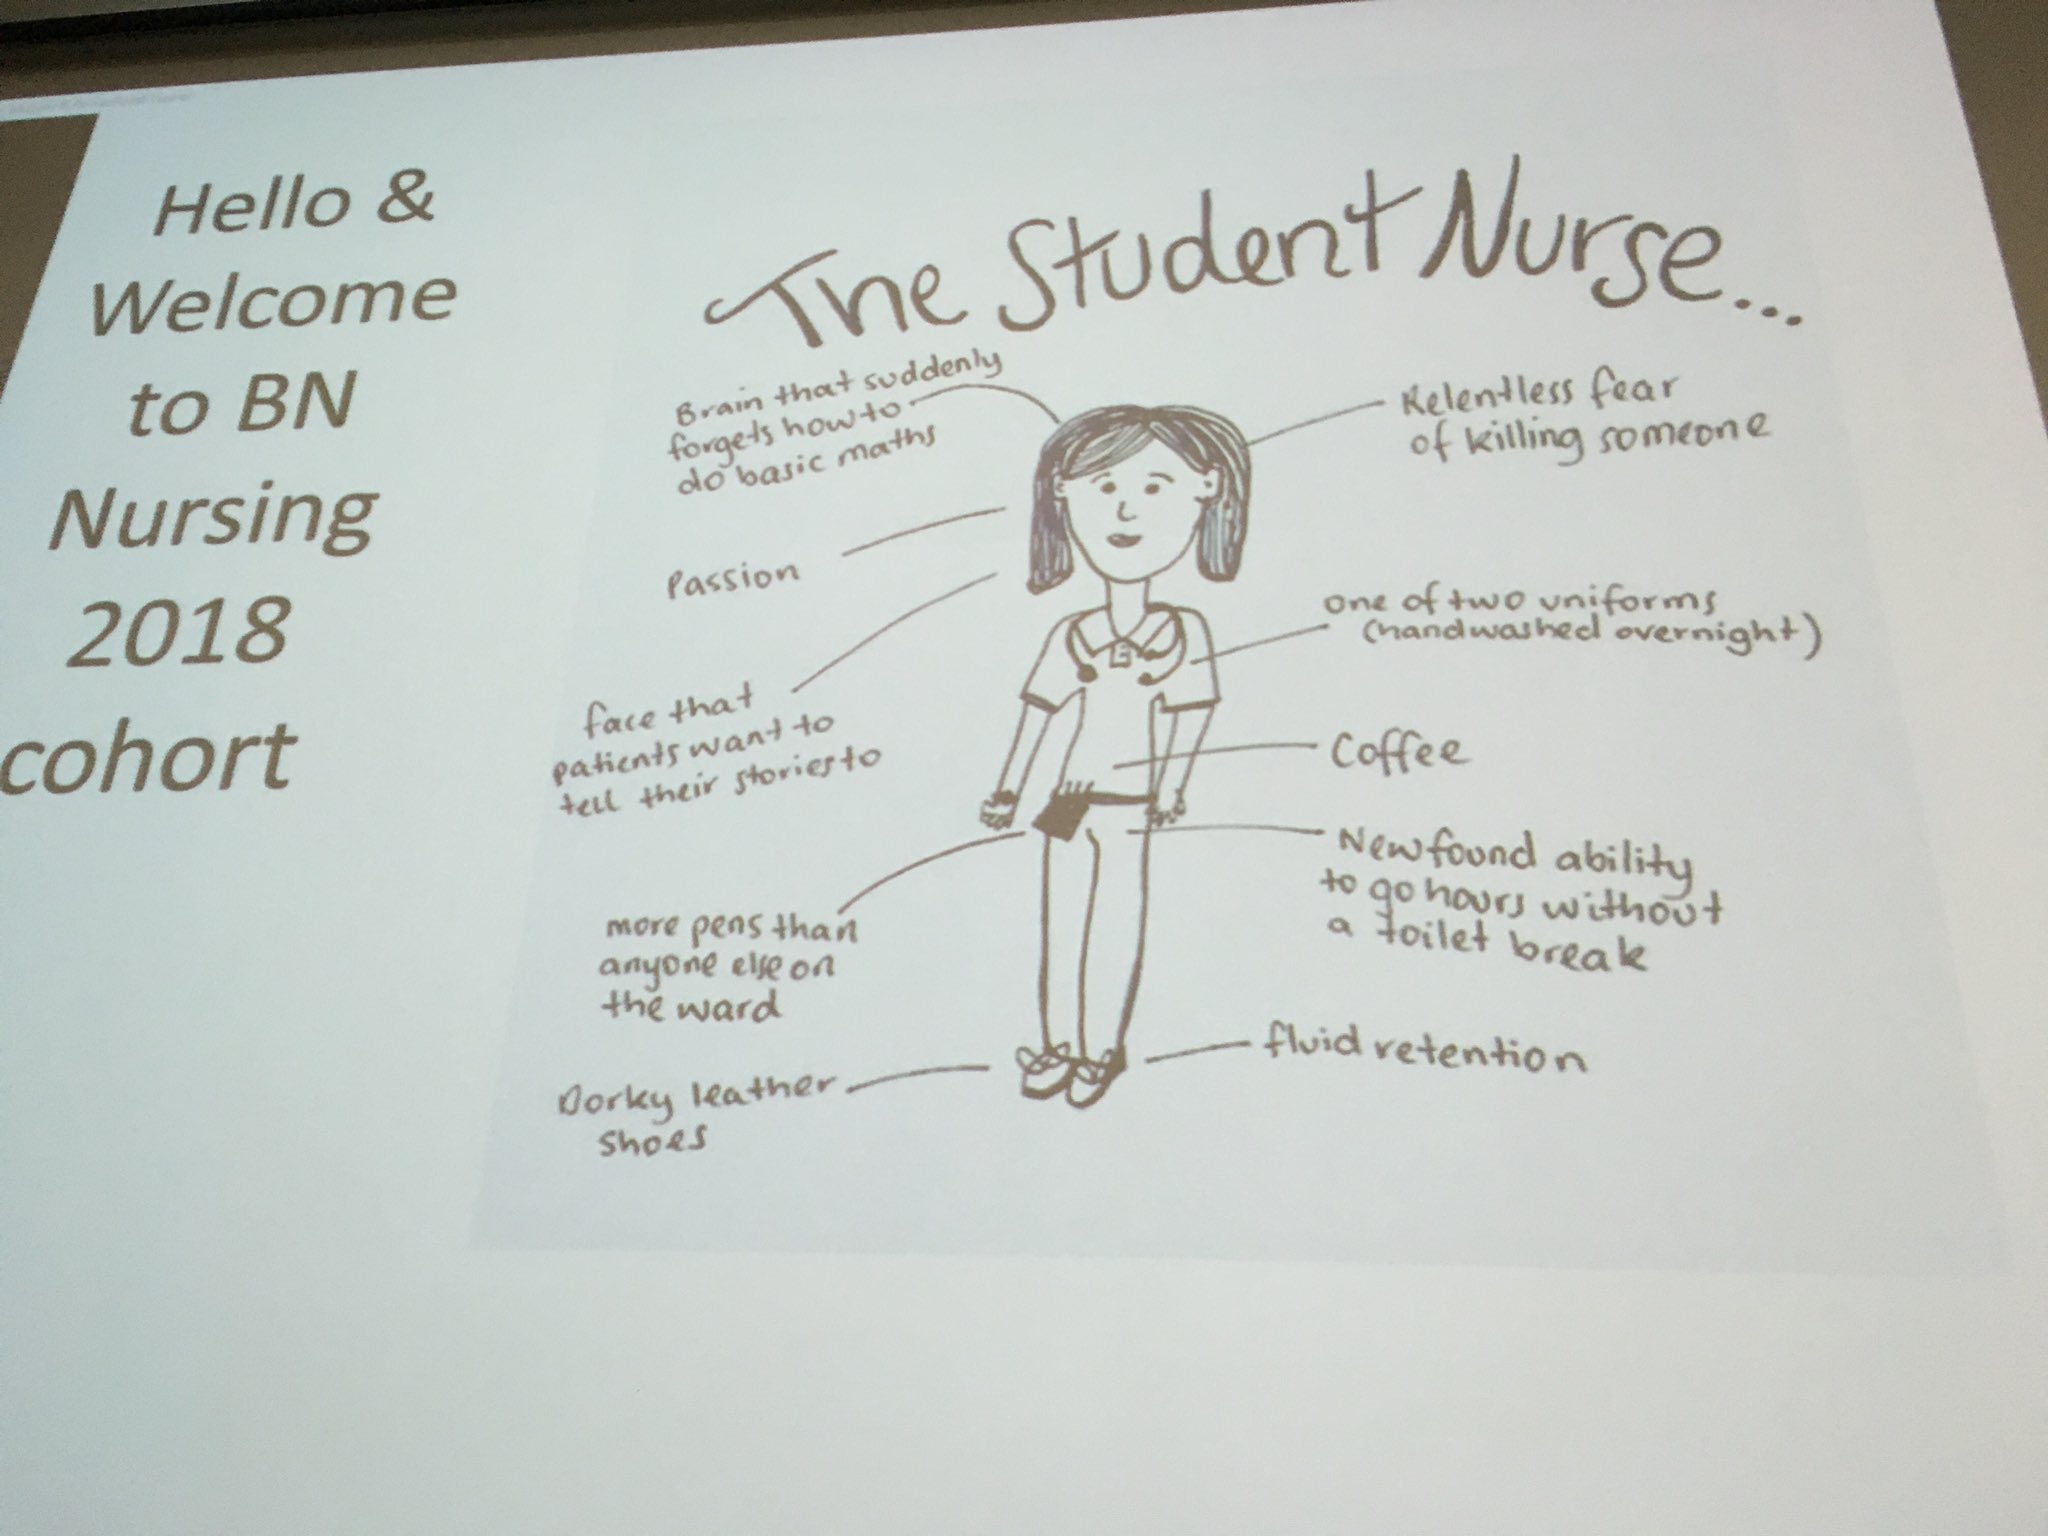 Hello &
Welcome
to BN
Nursing
2018
cohort
The Student Nurse...
Brain that suddenly
forgets how to
do basic maths
Passion
face that
patients want to
tell their stories to
more pens than
anyone else on
the ward
Dorky leather
shoes
Relentless fear
of killing someone
one of two uniforms
(handwashed overnight)
Coffee
Newfound ability
to go hours without
a toilet break
fluid retention